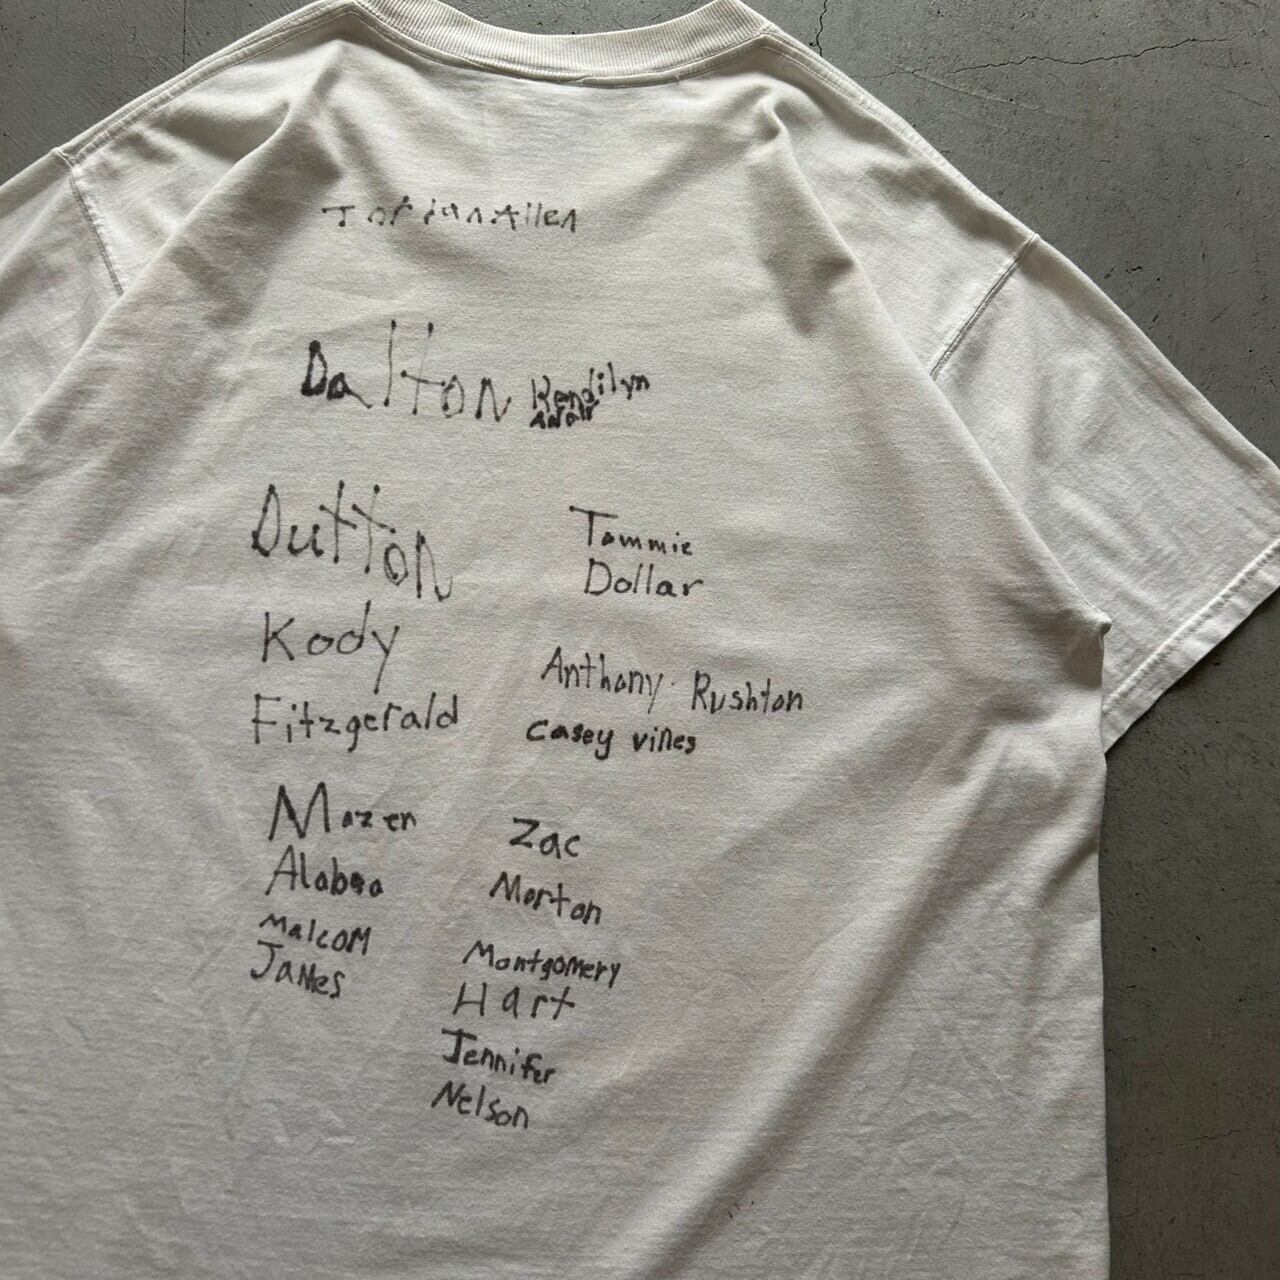 Jordan Allen
Dalton
Kendilyn
Dutton
Tommie
Dollar
Kody
Fitzgerald
Anthony Rushton
Casey vines
Mazen
Zac
Morton
Malcom
James
Montgomery
Hart
Jennifer
Nelson